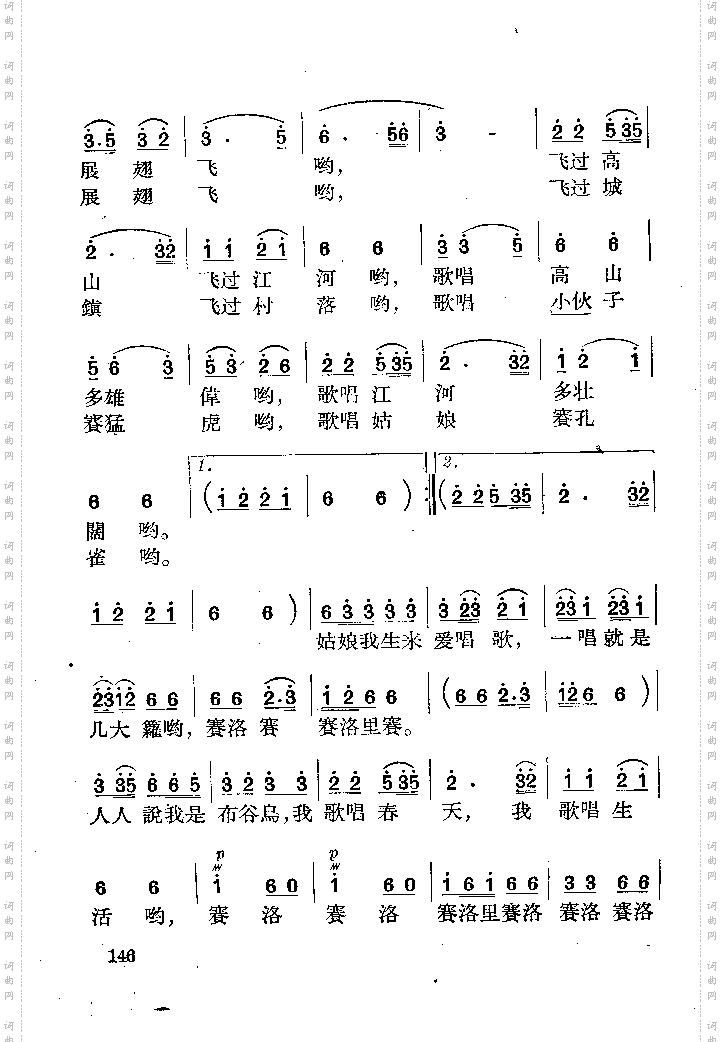 3·5 3 2 | 3 · 5 | 6 · 56 | 3 - | 2 2 5 35 |
展 翅 飞 哟， 飞过高
展 翅 飞 哟， 飞过城
2 · 32 | 1 1 2 1 | 6 6 | 3 3 5 | 6 6 |
山 飞过江 河 哟，歌唱 高 山
鎮 飞过村 落 哟，歌唱 小伙子
5 6 3 | 5 3 2 6 | 2 2 5 35 | 2 · 32 | 1 2 1 |
多雄 偉 哟，歌唱江 河 多壮
賽猛 虎 哟，歌唱姑 娘 賽孔
1. 2.
6 6 | (1 2 2 1 | 6 6) :‖ (2 2 5 35 | 2 · 32 |
闊 哟。
雀 哟。
1 2 2 1 | 6 6) | 6 3 3 3 3 | 3 23 2 1 | 23 1 23 1 |
姑娘我生来 爱唱 歌，一唱就是
2312 6 6 | 6 6 2·3 | 1 2 6 6 | (6 6 2·3 | 12 6 6) |
几大 籮哟，賽洛 賽 賽洛里賽。
3 35 6 6 5 | 3 2 3 3 | 2 2 5 35 | 2 · 32 | 1 1 2 1 |
人人 說我是 布谷鸟，我 歌唱 春 天， 我 歌唱 生
p p
6 6 | 1 6 0 | 1 6 0 | 1 6 1 6 6 | 3 3 6 6 |
活 哟， 賽 洛 賽 洛 賽洛里賽洛 賽洛 賽洛
146
词曲网